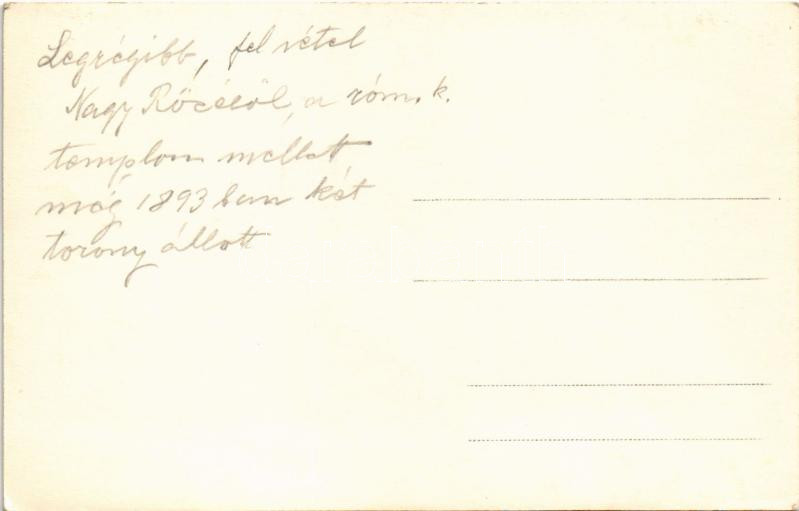 Legrégibb, fel vétel
Nagy Rőcéről, a róm. k.
templom mellett
még 1893 ban két
torony állott